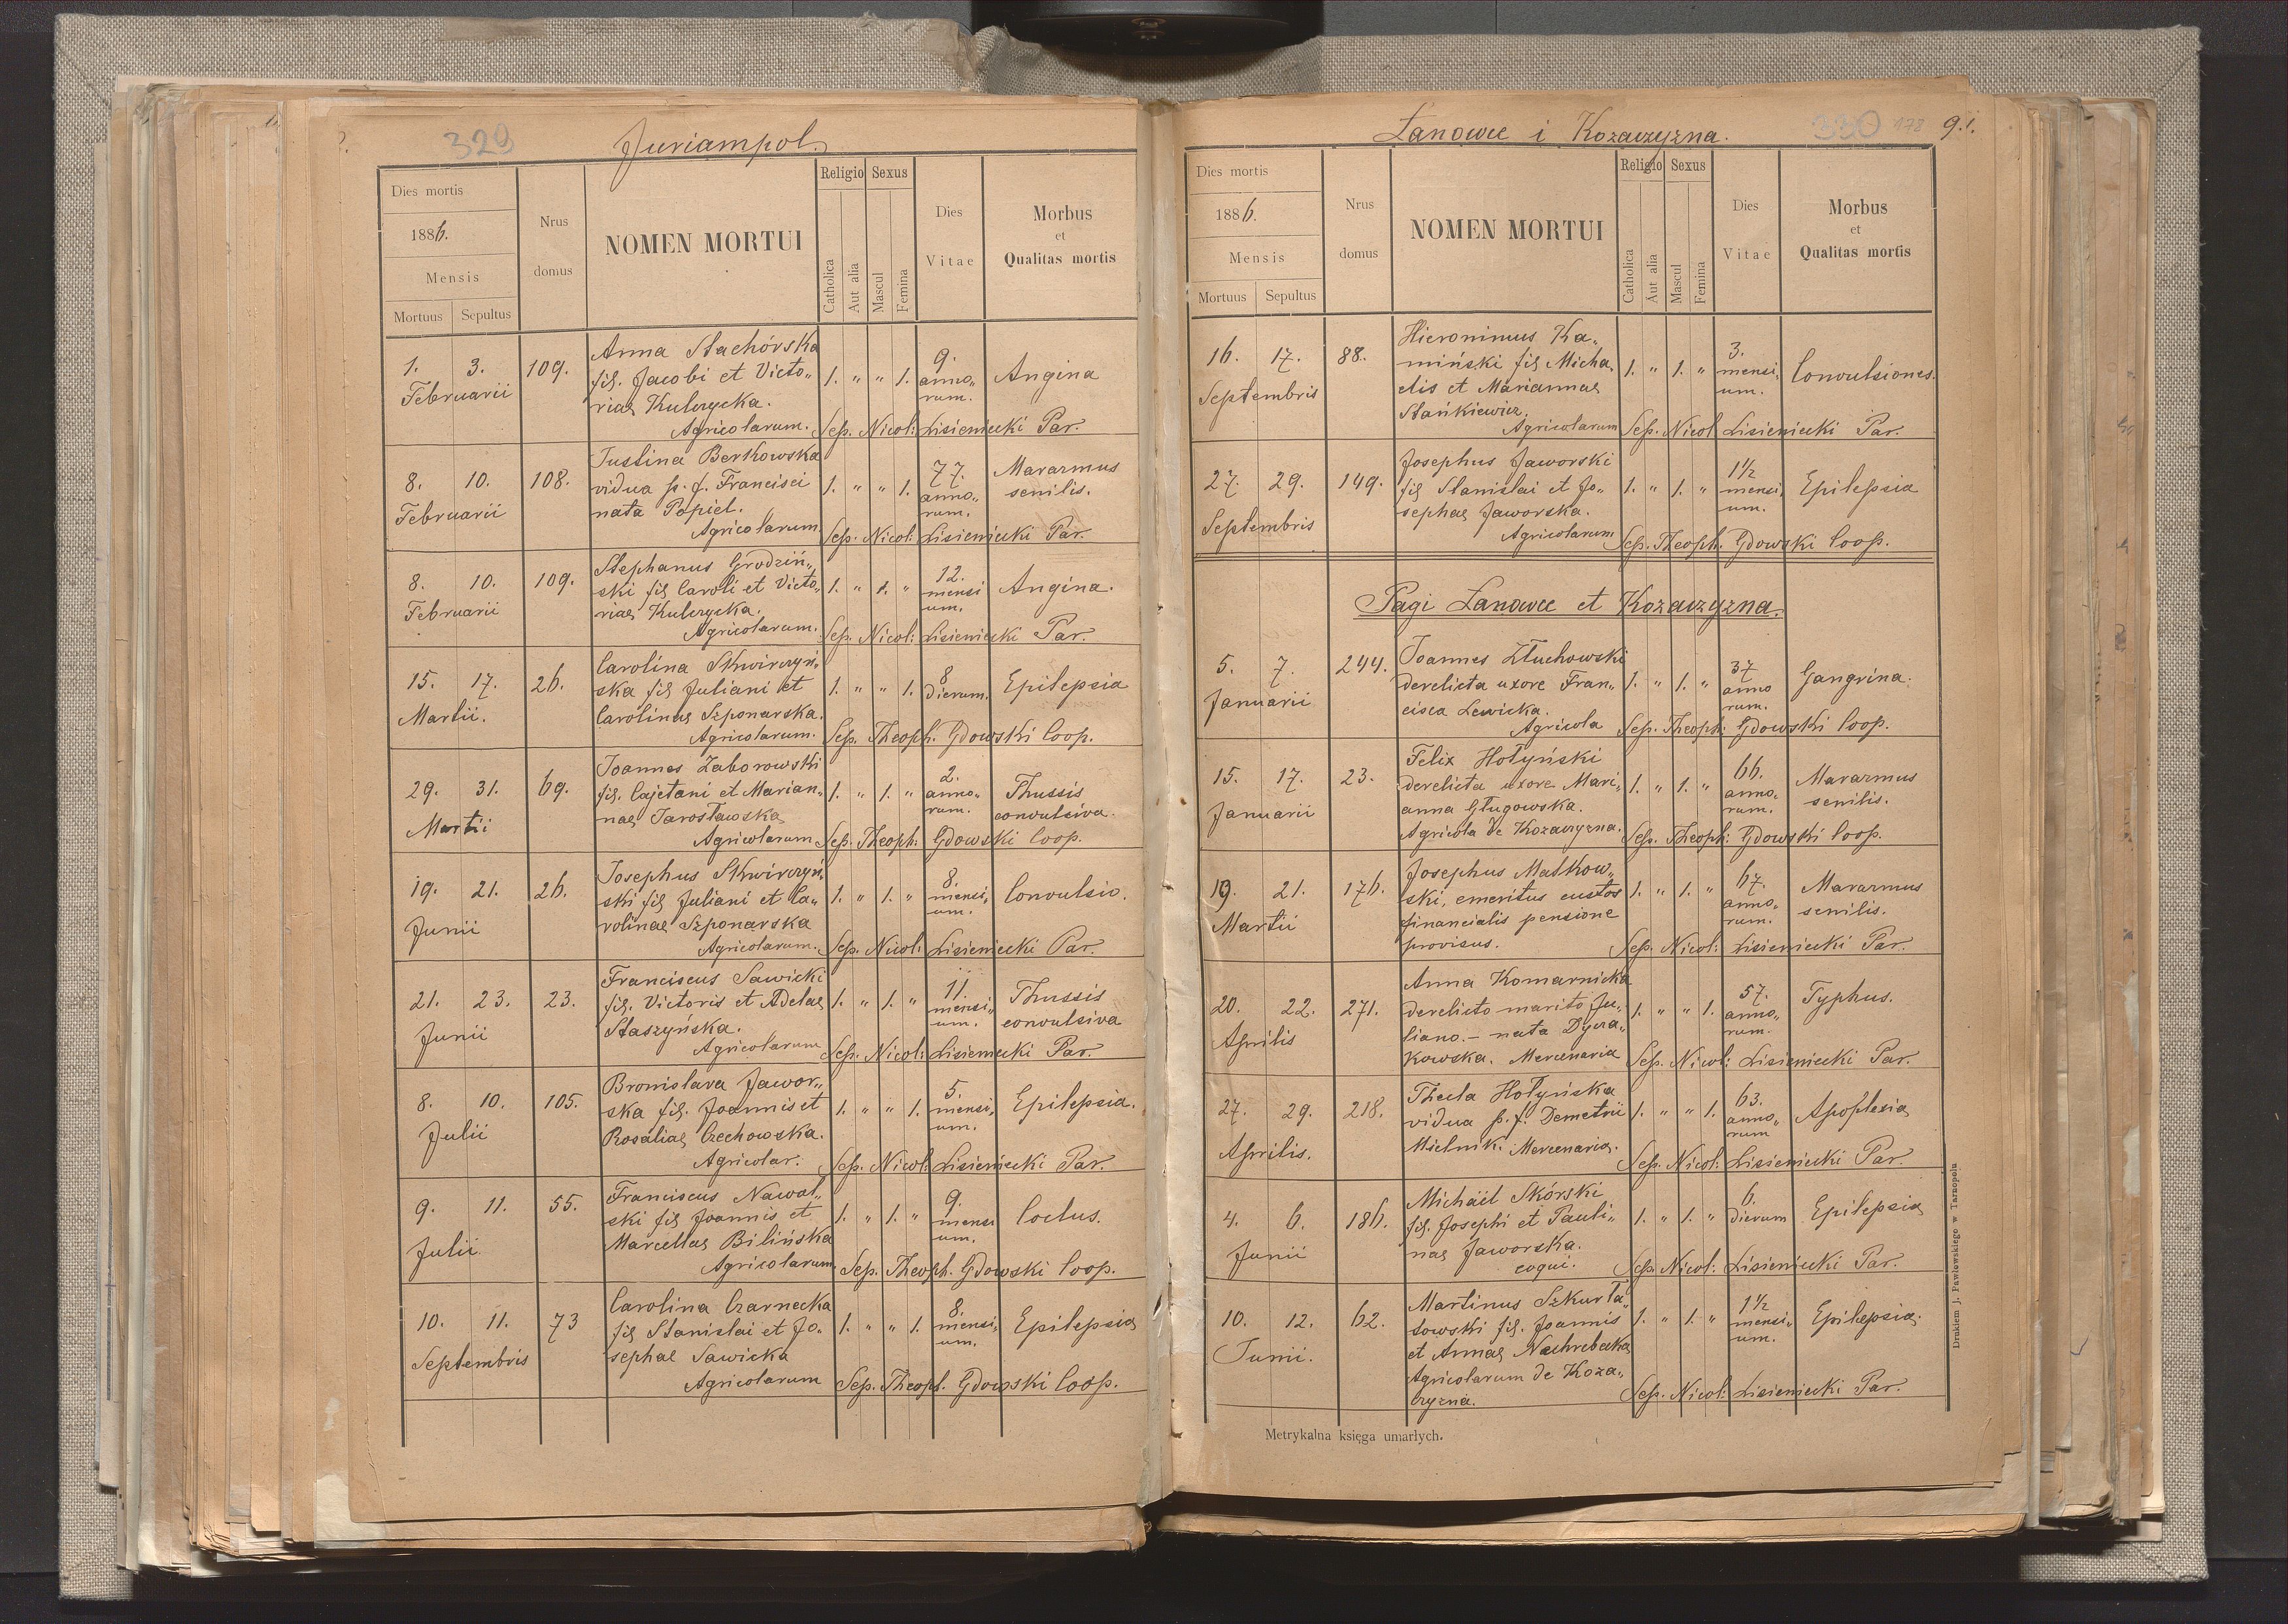 329
Juriampol.
Dies mortis
1886.
Mensis
Mortuus Sepultus
Nrus domus
NOMEN MORTUI
Religio Sexus
Catholica Aut alia Mascul Femina
Dies Vitae
Morbus
et
Qualitas mortis
Anna Stachórska
1. 3. 109. fil. Jacobi et Victo„ 1. „ „ 1. 9. anno„ rum. Angina
Februarii
riae Kulczycka.
Agricolarum. Sep. Nicol: Lisieniecki Par.
Justina Berkowska
8. 10. 108. vidua p. f. Francisci 1. „ „ 1. 77. anno„ rum. Marazmus senilis.
Februarii
nata Popiel.
Agricolarum. Sep. Nicol: Lisieniecki Par.
Stephanus Grodziń„
8. 10. 109. ski fil Caroli et Victo„ 1. „ 1. „ 12. mensi um. Angina.
Februarii
riae Kulczycka.
Agricolarum. Sep. Nicol: Lisieniecki Par.
Carolina Skwirczyń„
15. 17. 26. ska fil Juliani et 1. „ „ 1. 8 dierum. Epilepsia
Martii.
Carolinae Szponarska.
Agricolarum. Sep. Theoph. Gdowski Coop.
Joannes Zaborowski
29. 31. 69. fil. Cajetani et Marian„ 1. „ 1. „ 2. anno„ rum. Thussis convulsiva.
Martii
nae Jarosławska
Agricolarum Sep. Theoph: Gdowski Coop.
Josephus Skwirczyń„
19. 21. 26. ski fil Juliani et Ca„ 1. „ 1. „ 8. mensi„ um. Convulsio.
Junii
rolinae Szponarska
Agricolarum. Sep. Nicol: Lisieniecki Par.
Franciscus Sawicki
21. 23. 23. fil. Victoris et Adelae 1. „ 1. „ 11. mensi„ um. Thussis convulsiva
Junii
Staszyńska.
Agricolarum Sep. Nicol: Lisieniecki Par.
Bronislava Jawor„
8. 10. 105. ska fil. Joannis et 1. „ „ 1. 5. mensi„ um. Epilepsia.
Julii
Rosaliae Czechowska.
Agricolar. Sep. Nicol: Lisieniecki Par.
Franciscus Nawol„
9. 11. 55. ski fil Joannis et 1. „ 1. „ 9. mensi um. Coctus.
Julii
Marcellae Bilińska
Agricolarum. Sep. Theoph. Gdowski Coop.
Carolina Czarnecka
10. 11. 73 fil Stanislai et Jo„ 1. „ „ 1. 8. mensi„ um. Epilepsia
Septembris
sephae Sawicka
Agricolarum Sep. Theoph. Gdowski Coop.
Łanowce i Kozaczyzna.
330 178 91.
Dies mortis
1886.
Mensis
Mortuus Sepultus
Nrus domus
NOMEN MORTUI
Religio Sexus
Catholica Aut alia Mascul Femina
Dies Vitae
Morbus
et
Qualitas mortis
Hieronimus Ka„
16. 17. 88. miński fil Micha„ 1. „ 1. „ 3. mensi„ um. Convulsiones.
Septembris
elis et Mariannae
Stańkiewicz.
Agricolarum Sep. Nicol Lisieniecki Par.
Josephus Jaworski
27. 29. 149. fil Stanislai et Jo„ 1. „ 1. „ 1 1/2 mensi„ um. Epilepsia
Septembris
sephae Jaworska.
Agricolarum Sep. Theoph. Gdowski Coop.
Pagi Łanowce et Kozaczyzna.
Joannes Złuchowski
5. 7. 244. derelicta uxore Fran„ 1. „ 1. „ 37 anno rum. Gangrina.
Januarii
cisca Lewicka.
Agricola Sep. Theoph: Gdowski Coop.
Felix Hołyński
15. 17. 23. derelicta uxore Mari„ 1. „ 1. „ 66. anno„ rum. Marazmus senilis.
Januarii
anna Glugowska.
Agricola de Kozaczyzna. Sep. Theoph: Gdowski Coop.
Josephus Małkow„
19. 21. 176. ski, emeritus custos 1. „ 1. „ 67. anno„ rum. Marazmus senilis.
Martii
financialis pensione
provisus. Sep. Nicol: Lisieniecki Par.
Anna Komarnicka
20. 22. 271. derelicto marito Ju„ 1. „ „ 1. 57. anno„ rum. Typhus.
Aprilis
liano. – nata Dyra„
kowska. Mercenaria Sep. Nicol: Lisieniecki Par.
Thecla Hołyńska
27. 29. 218. vidua p. f. Demetrii 1. „ „ 1. 63. anno„ rum Apoplesia
Aprilis.
Mielnik. Mercenaria. Sep. Nicol: Lisieniecki Par.
Michaël Skórski
4. 6. 186. fil. Josephi et Pauli„ 1. „ 1. „ 6. dierum Epilepsia
Junii
nae Jaworska.
coqui. Sep. Nicol: Lisieniecki Par.
Martinus Szkurła„
10. 12. 62. towski fil. Joannis 1. „ 1. „ 1 1/2 mensi„ um. Epilepsia.
Junii.
et Annae Nachrebecka
Agricolarum de Koza„
czyzna. Sep. Nicol: Lisieniecki Par.
Metrykalna księga umarłych.
Drukiem J. Pawłowskiego w Tarnopolu